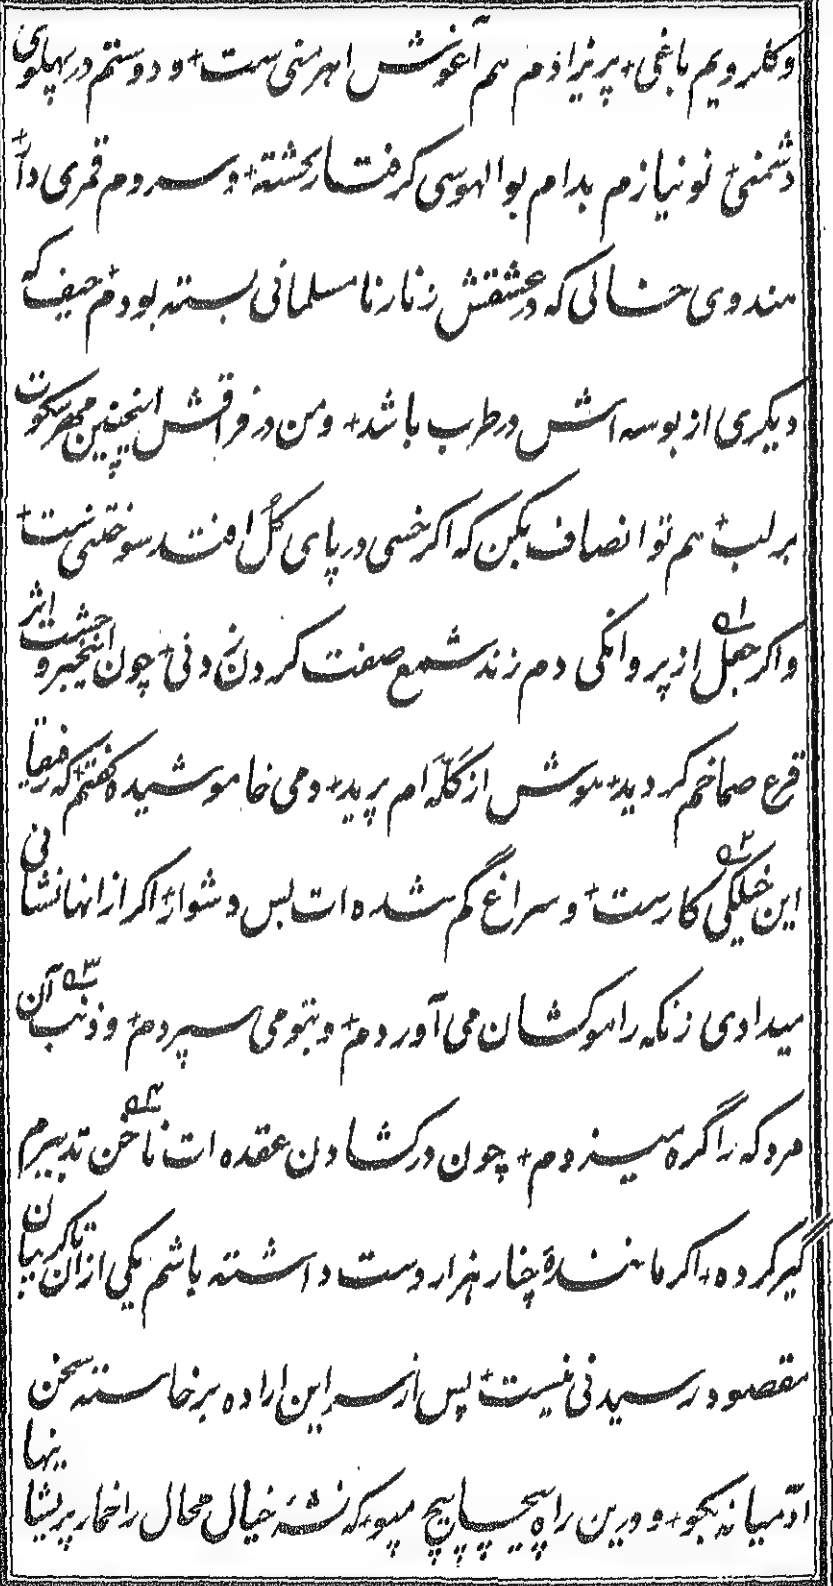 و گلرویم باغی + پریزادم هم آغوش اهرمنی ست + و دوستم در پهلوی
دشمنی + نو نیازم بدام بوالهوسی گرفتار گشته + و سروم قمری دار +
هندوی خالی که در عشقش زنار نامسلمانی بسته بودم + حیف که
دیگری از بوسه اش در طرب باشد + و من در فراقش اینچنین مهر سکوت
بر لب + هم تو انصاف بکن که اگر خسی در پای گل افتد سوختنی ست +
و اگر جعل از پروانگی دم زند شمع صفت گردن زدنی + چون این خبر وحشت اثر
قرع صماخم گردید + هوش از کله ام پرید + دمی خاموشیده گفتم + که رفیقا
این خیلکی کارست + و سراغ گم شده ات بس دشوار + اگر از انها نشانی
میدادی زنکه را موکشان می آوردم + و بتو می سپردم + و ذنب آن
مردکه را گره میزدم + چون در گشادن عقده ات ناخن تدبیرم
گیر کرده + اگر مانند چنار هزار دست داشته باشم یکی ازان تا گریبان
مقصود رسیدنی نیست + پس از سر این اراده برخاسته سخن
آدمیانه بگو + و درین راه پیچاپیچ مپو + که نشهٔ خیال محال را خمار پریشانیها